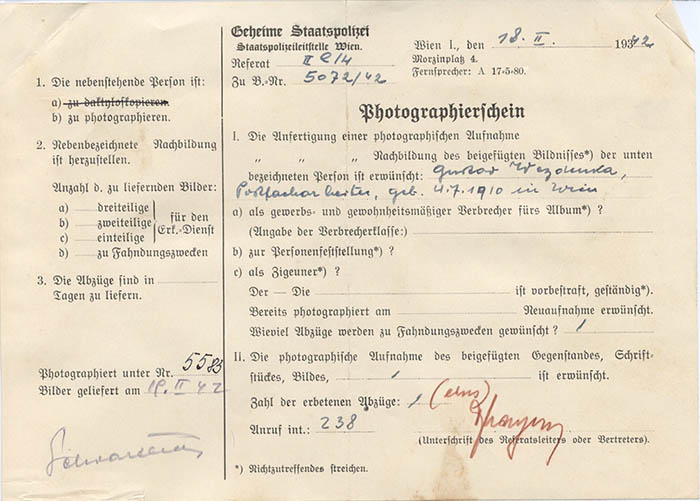 Geheime Staatspolizei
Staatspolizeileitstelle Wien.
Referat II C/4
Zu B.-Nr. 5072/42
Wien I., den 18. II. 1942
Morzinplatz 4.
Fernsprecher: A 17-5-80.
1. Die nebenstehende Person ist:
a) zu daktyloskopieren.
b) zu photographieren.
2. Nebenbezeichnete Nachbildung
ist herzustellen.
Anzahl d. zu liefernden Bilder:
a) dreiteilige
b) zweiteilige
c) einteilige
für den
Erk.-Dienst
d) zu Fahndungszwecken
3. Die Abzüge sind in
Tagen zu liefern.
Photographiert unter Nr. 5585
Bilder geliefert am 19. II 42
Photographierschein
I. Die Anfertigung einer photographischen Aufnahme
„ „ „ Nachbildung des beigefügten Bildnisses*) der unten
bezeichneten Person ist erwünscht: Gustav
geb. 4.7.1910 in Wien
a) als gewerbs- und gewohnheitsmäßiger Verbrecher fürs Album*) ?
(Angabe der Verbrecherklasse:)
b) zur Personenfeststellung*) ?
c) als Zigeuner*) ?
Der — Die ist vorbestraft, geständig*).
Bereits photographiert am Neuaufnahme erwünscht.
Wieviel Abzüge werden zu Fahndungszwecken gewünscht ? 1
II. Die photographische Aufnahme des beigefügten Gegenstandes, Schrift-
stückes, Bildes, 1 ist erwünscht.
Zahl der erbetenen Abzüge: 1 (eins)
Anruf int.: 238
(Unterschrift des Referatsleiters oder Vertreters).
*) Nichtzutreffendes streichen.